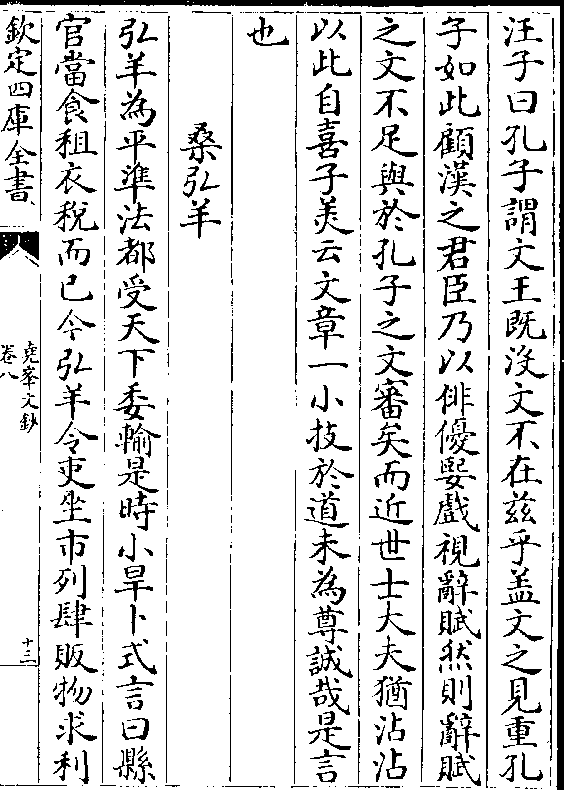 汪子曰孔子謂文王既沒文不在茲乎盖文之見重孔
子如此顧漢之君臣乃以俳優媐戲視辭賦然則辭賦
之文不足與於孔子之文審矣而近世士大夫猶沾沾
以此自喜子美云文章一小技於道未為尊誠哉是言
也
桑弘羊
弘羊為平準法都受天下委輸是時小旱卜式言曰縣
官當食租衣稅而已今弘羊令吏坐市列肆販物求利
欽定四庫全書
堯峯文鈔
卷八
十三